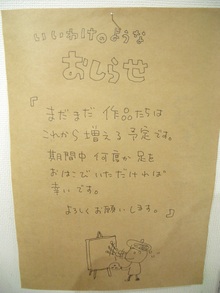 いいわけのような
おしらせ
『まだまだ 作品たちは
これから増える予定です。
期間中 何度か足を
おはこびいただければ
幸いです。
よろしくお願いします。』